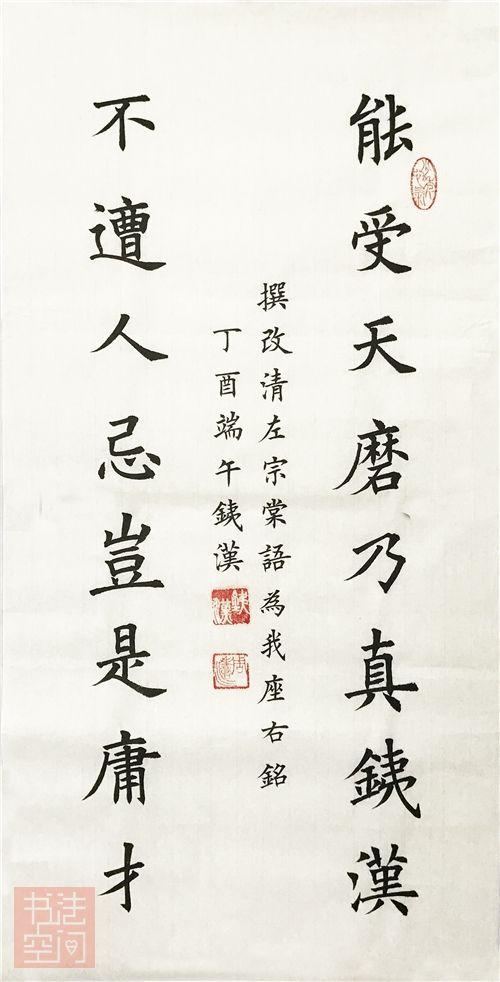 能受天磨乃真銕漢
撰改清左宗棠語為我座右銘
丁酉端午銕漢
銕漢
不遭人忌豈是庸才
书法
空间